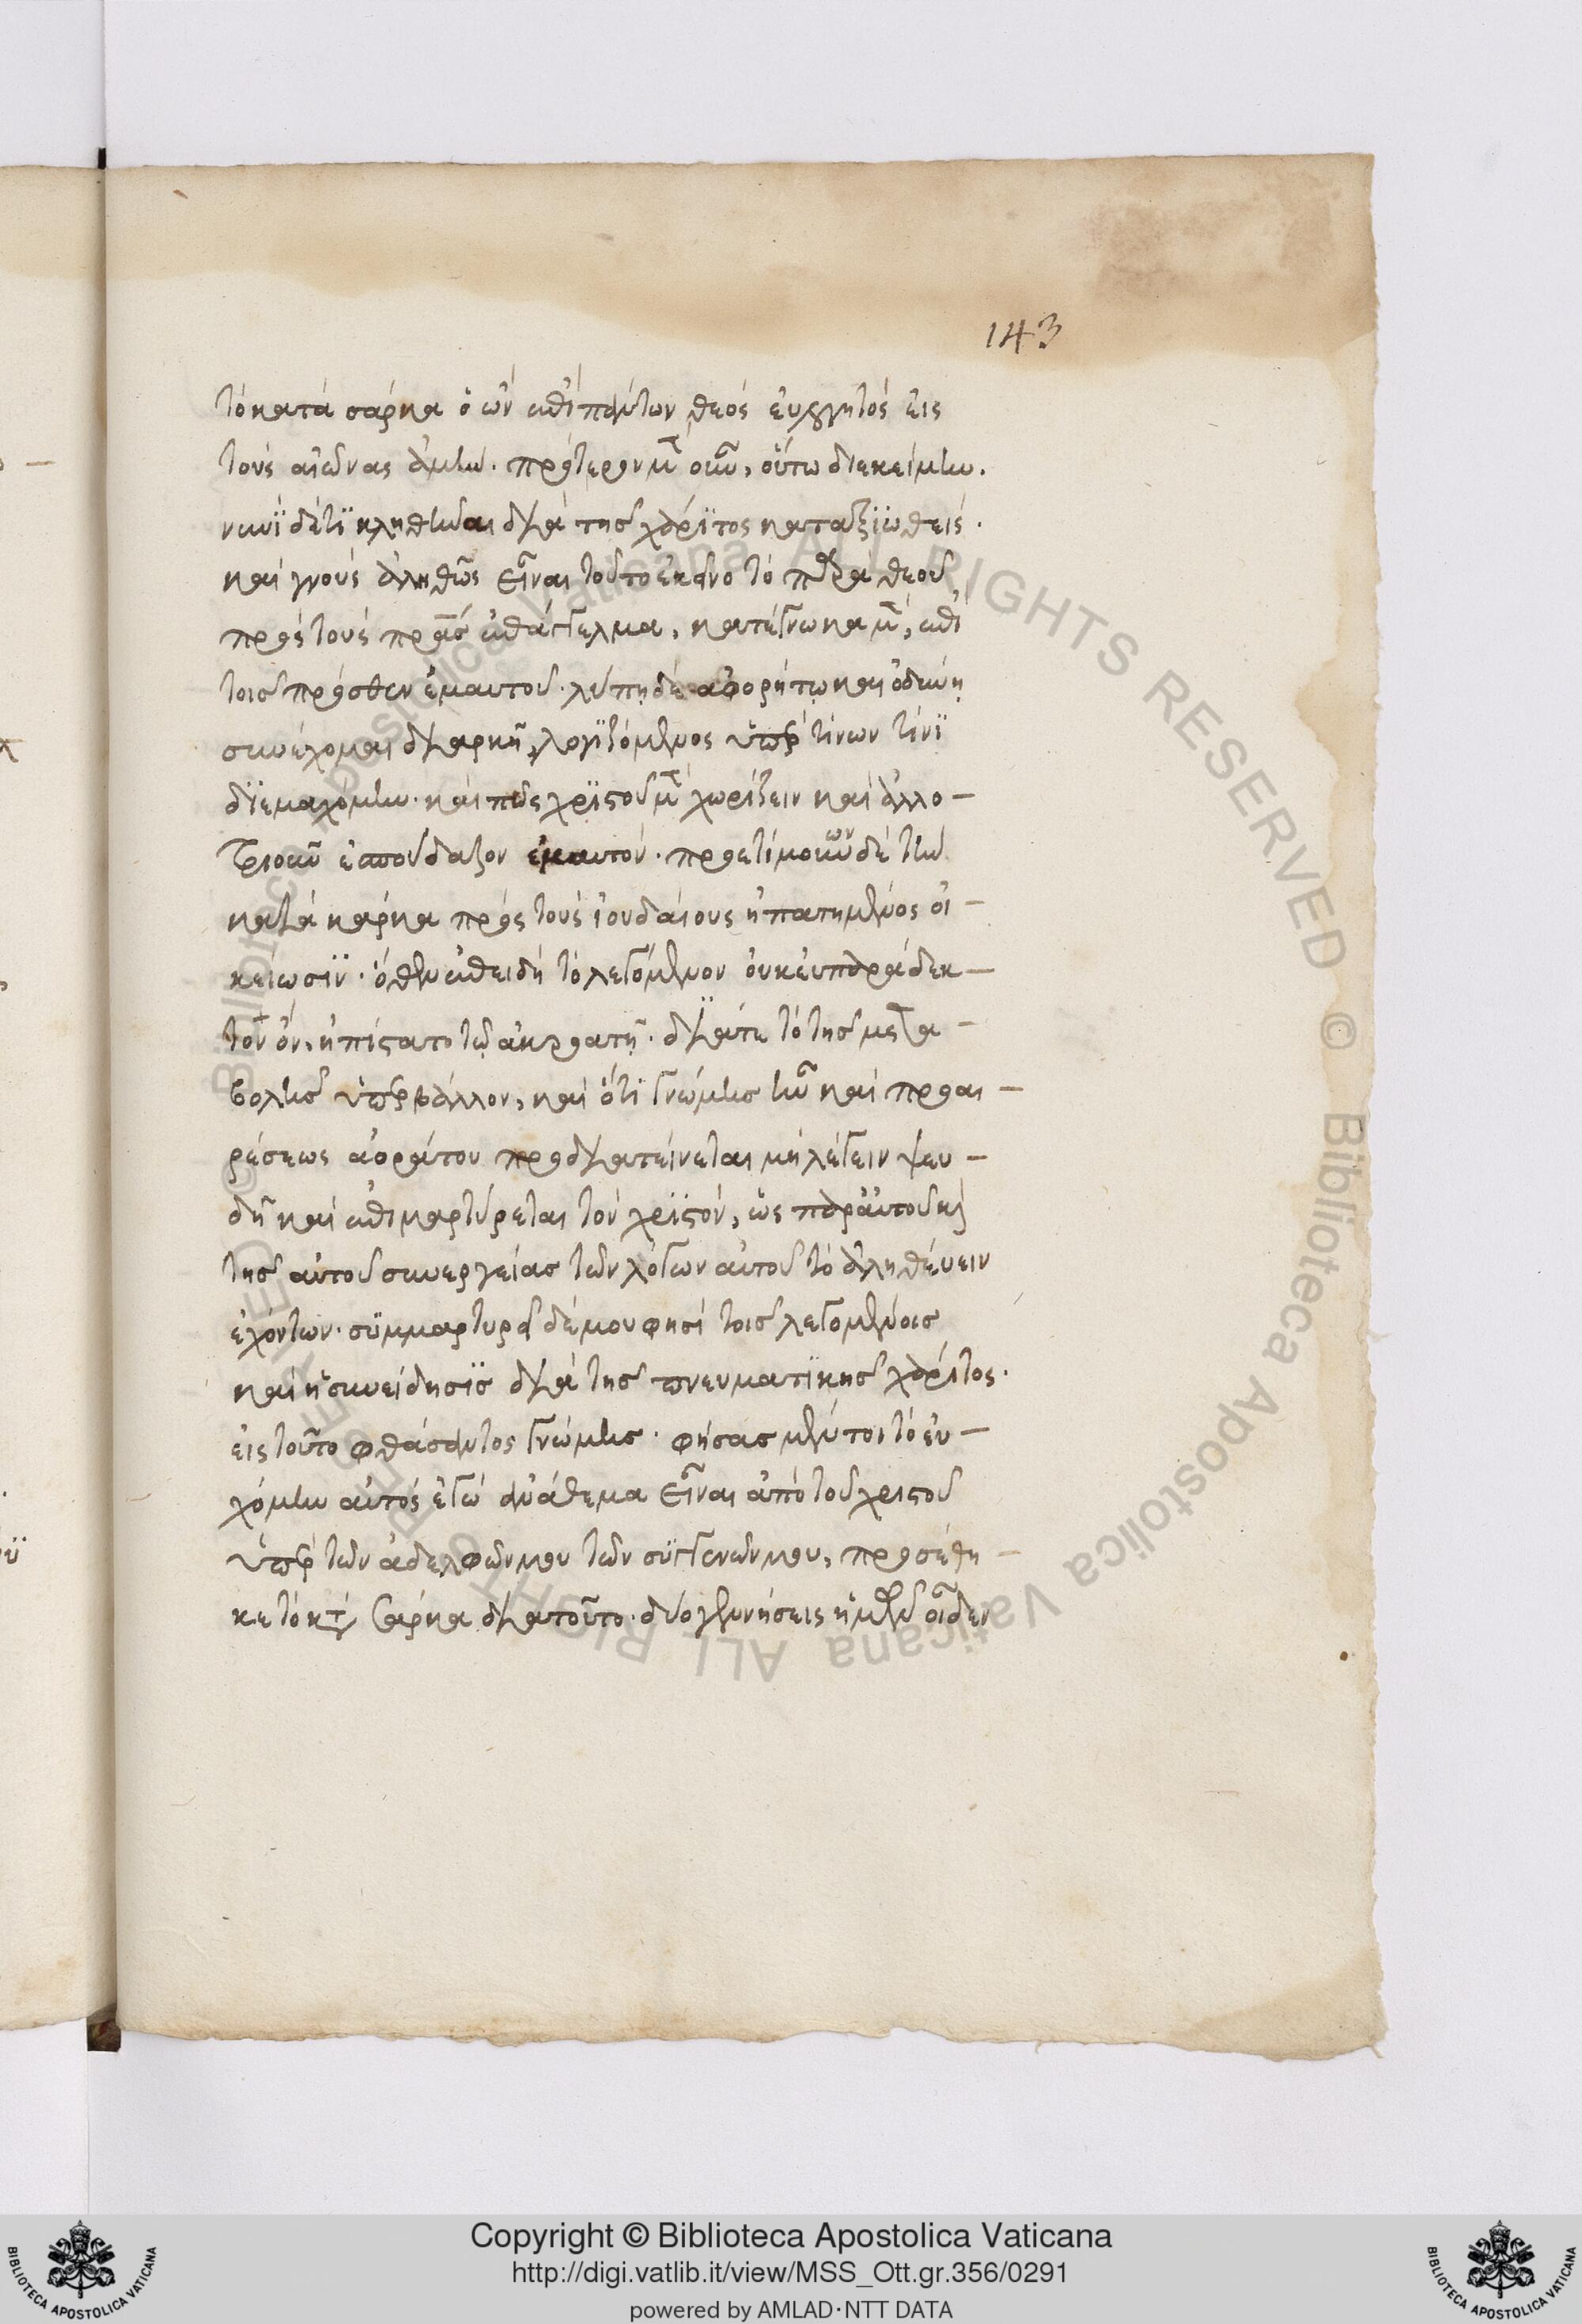 143
τὸ κατὰ σάρκα ὁ ὢν ἐπὶ πάντων θεὸς ἐυλογητὸς ἐις
τοὺς αἰῶνας ἀμήν. πρότερον μὲν οὖν, οὕτω διεκείμην.
νυνὶ δέ τϊ κληθῆναι διὰ τῆς χάρϊτος καταξϊωθεὶς.
καὶ γνοὺς ἀληθῶς εἶναι τοῦτο ἐκεῖνο τὸ παρὰ θεοῦ
πρὸς τοὺς πρας ἐπάγγελμα, κατέγνωκα μὲν, ἐπὶ
τοῖς πρόσθεν ἐμαυτοῦ. λύπη δὲ αφορήτω και ὀδύνη
συνέχομαι διαρκῆ, λογϊζόμενος ὑπὲρ τίνων τίνϊ
δϊεμαχόμην. καὶ πῶς χρϊστοῦ μὲν χωρίζειν καὶ ἀλλο-
τριοῦν ἐσπούδαζον ἐμαυτόν. προετίμουν ων δὲ τὴν
κατὰ κάρκα πρὸς τοὺς ἰουδάιους ἠπατημένος οἰ-
κείωσϊν. ὅθεν ἐπειδὴ τὸ λεγόμενον ὀυκ ἐυπαράδεκ-
τον ὀν, ἠπίστατο τῷ ἀκροατῆ. διάτε τὸ τῆς μετα-
βολῆς ὑπερβάλλον, καὶ ὅτϊ γνώμης ἦν καὶ προαι-
ρέσεως ἀοράτου προδιατείνεται μὴ λέγειν ψευ-
δῆ καὶ ἐπιμαρτύρεται τὸν χρϊστὸν, ὡς παρ' ἀυτοῦ καὶ
τῆς αὐτοῦ συνεργείας τῶν λόγων αὐτοῦ τὸ ἀληθέυειν
ἐχόντων. σϋμμαρτυρεῖ δέ μου φησὶ τοῖς λεγομένοις
καὶ ἡ συνείδησϊς διὰ τῆς πνευματϊκῆς χάριτος.
ἐις τοῦτο φθάσαντος γνώμης. φήσας μέντοι τὸ ἐυ-
χόμην αὐτὸς ἐγὼ ἀνάθεμα εἶναι ἀπὸ τοῦ χριστοῦ
ὑπὲρ τῶν ἀδελφῶν μου τῶν σϋγγενῶν μου, προσέθη-
κε τὸ κατὰ σάρκα διατοῦτο. δύο γεννήσεις ἡμῶν οἶδεν
Copyright © Biblioteca Apostolica Vaticana
http://digi.vatlib.it/view/MSS_Ott.gr.356/0291
powered by AMLAD·NTT DATA